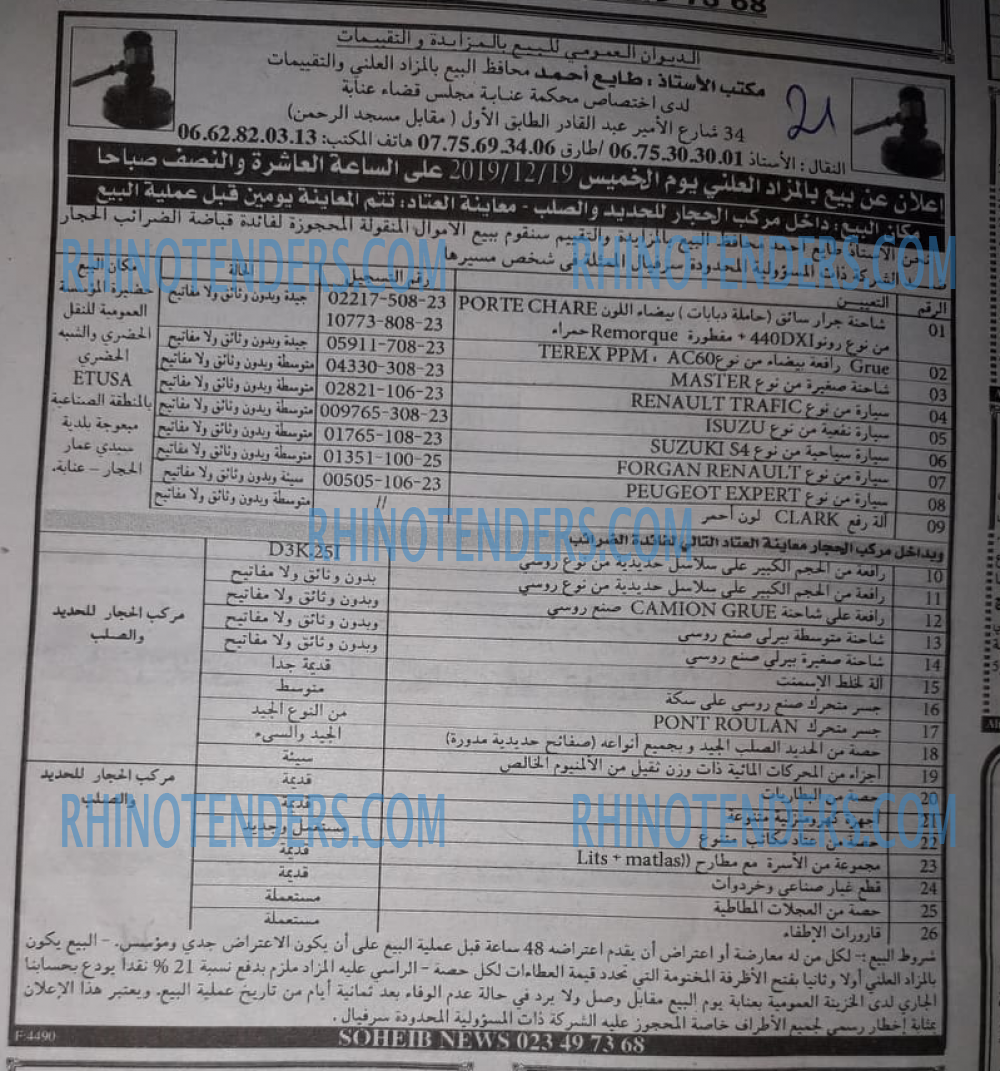 الديوان العمومي للبيع بالمزايدة و التقييمات
مكتب الأستاذ : طايع أحمد محافظ البيع بالمزاد العلني والتقييمات
لدى اختصاص محكمة عنابة مجلس قضاء عنابة
34 شارع الأمير عبد القادر الطابق الأول ( مقابل مسجد الرحمن)
النقال : الأستاذ 06.75.30.30.01 /طارق 07.75.69.34.06 هاتف المكتب: 06.62.82.03.13
21
إعلان عن بيع بالمزاد العلني يوم الخميس 2019/12/19 على الساعة العاشرة والنصف صباحا
مكان البيع: داخل مركب الحجار للحديد والصلب - معاينة العتاد: تتم المعاينة يومين قبل عملية البيع
نحن الأستاذ طايع أحمد محافظ البيع بالمزايدة والتقييم سنقوم ببيع الاموال المنقولة المحجوزة لفائدة قباضة الضرائب الحجار
الشركة ذات المسؤولية المحدودة سرفيال الممثلة في شخص مسيرها
الرقم التعيين رقم التسجيل الحالة مكان البيع
01 شاحنة جرار سائق (حاملة دبابات ) بيضاء اللون PORTE CHARE 02217-508-23 جيدة وبدون وثائق ولا مفاتيح
من نوع رونو 440DXI + مقطورة Remorque حمراء 10773-808-23
02 Grue رافعة بيضاء من نوع TEREX PPM ، AC60 05911-708-23 جيدة وبدون وثائق ولا مفاتيح
03 شاحنة صغيرة من نوع MASTER 04330-308-23 متوسطة وبدون وثائق ولا مفاتيح
04 سيارة من نوع RENAULT TRAFIC 02821-106-23 متوسطة وبدون وثائق ولا مفاتيح
05 سيارة نفعية من نوع ISUZU 009765-308-23 متوسطة وبدون وثائق ولا مفاتيح
06 سيارة سياحية من نوع SUZUKI S4 01765-108-23 متوسطة وبدون وثائق ولا مفاتيح
07 سيارة من نوع FORGAN RENAULT 01351-100-25 متوسطة وبدون وثائق ولا مفاتيح
08 سيارة من نوع PEUGEOT EXPERT 00505-106-23 سيئة وبدون وثائق ولا مفاتيح
09 آلة رفع CLARK لون أحمر // متوسطة وبدون وثائق ولا مفاتيح
حضيرة المؤسسة
العمومية للنقل
الحضري والشبه
الحضري
ETUSA
بالمنطقة الصناعية
ميعوجة بلدية
سيدي عمار
الحجار – عنابة.
وبداخل مركب الحجار معاينة العتاد التالي لفائدة الضرائب
10 رافعة من الحجم الكبير على سلاسل حديدية من نوع روسي D3K.25I
11 رافعة من الحجم الكبير على سلاسل حديدية من نوع روسي بدون وثائق ولا مفاتيح
12 رافعة على شاحنة CAMION GRUE صنع روسي وبدون وثائق ولا مفاتيح
13 شاحنة متوسطة بيرلي صنع روسي وبدون وثائق ولا مفاتيح
14 شاحنة صغيرة بيرلي صنع روسي وبدون وثائق ولا مفاتيح
15 آلة لخلط الإسمنت قديمة جدا
16 جسر متحرك صنع روسي على سكة متوسط
17 جسر متحرك PONT ROULAN من النوع الجيد
18 حصة من الحديد الصلب الجيد و بجميع أنواعه (صفائح حديدية مدورة) الجيد والسيء
19 أجزاء من المحركات المائية ذات وزن ثقيل من الألمنيوم الخالص سيئة
مركب الحجار للحديد
والصلب
20 حصة من البطاريات قديمة
21 أجهزة كهرومنزلية متنوعة قديمة
22 حصة من عتاد مكاتب متنوع مستعمل وجديد
23 مجموعة من الأسرة مع مطارح ((Lits + matlas قديمة
24 قطع غيار صناعي وخردوات قديمة
25 حصة من العجلات المطاطية مستعملة
26 قارورات الإطفاء مستعملة
مركب الحجار للحديد
والصلب
شروط البيع :- لكل من له معارضة أو اعتراض أن يقدم اعتراضه 48 ساعة قبل عملية البيع على أن يكون الاعتراض جدي ومؤسس. - البيع يكون
بالمزاد العلني أولا وثانيا بفتح الأظرفة المختومة التي تحدد قيمة العطاءات لكل حصة - الراسي عليه المزاد ملزم بدفع نسبة 21 % نقدا يودع بحسابنا
الجاري لدى الخزينة العمومية بعنابة يوم البيع مقابل وصل ولا يرد في حالة عدم الوفاء بعد ثمانية أيام من تاريخ عملية البيع. ويعتبر هذا الإعلان
بمثابة إخطار رسمي لجميع الأطراف خاصة المحجوز عليه الشركة ذات المسؤولية المحدودة سرفيال .
F:4490 SOHEIB NEWS 023 49 73 68
RHINOTENDERS.COM
RHINOTENDERS.COM
RHINOTENDERS.COM
RHINOTENDERS.COM
RHINOTENDERS.COM